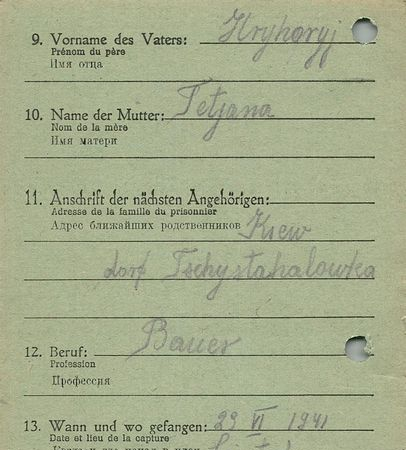 9. Vorname des Vaters: Hryhoryj
Prénom du père
Имя отца
10. Name der Mutter: Tetjana
Nom de la mère
Имя матери
11. Anschrift der nächsten Angehörigen:
Adresse de la famille du prisonnier
Адрес ближайших родственников Kiew
dorf Tschystahalowka
12. Beruf: Bauer
Profession
Профессия
13. Wann und wo gefangen: 29 VI 1941
Date et lieu de la capture